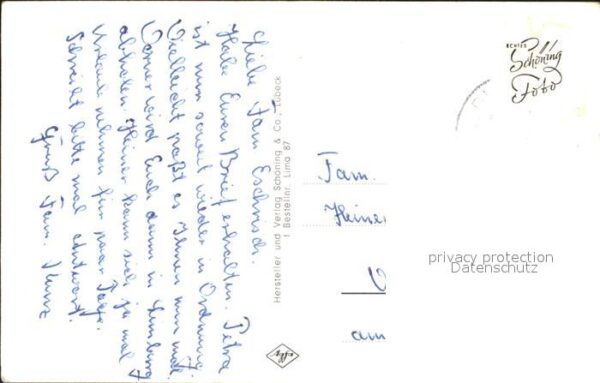 Liebe Fam. Eschnich.
Habe Euren Brief erhalten. Petra
ist nun soweit wieder in Ordnung.
Vielleicht paßt es Ihnen nun mal.
wird Euch dann in Limburg
abholen. Heiner kann sich ja mal
Urlaub nehmen für paar Tage.
Schreibt bitte mal Antwort.
Gruß Fam.
Hersteller und Verlag Schöning & Co., Lübeck
1 Bestellnr. Lima 87
ECHTES
Schöning
Foto
Fam.
Heiner
am
privacy protection
Datenschutz
agfa